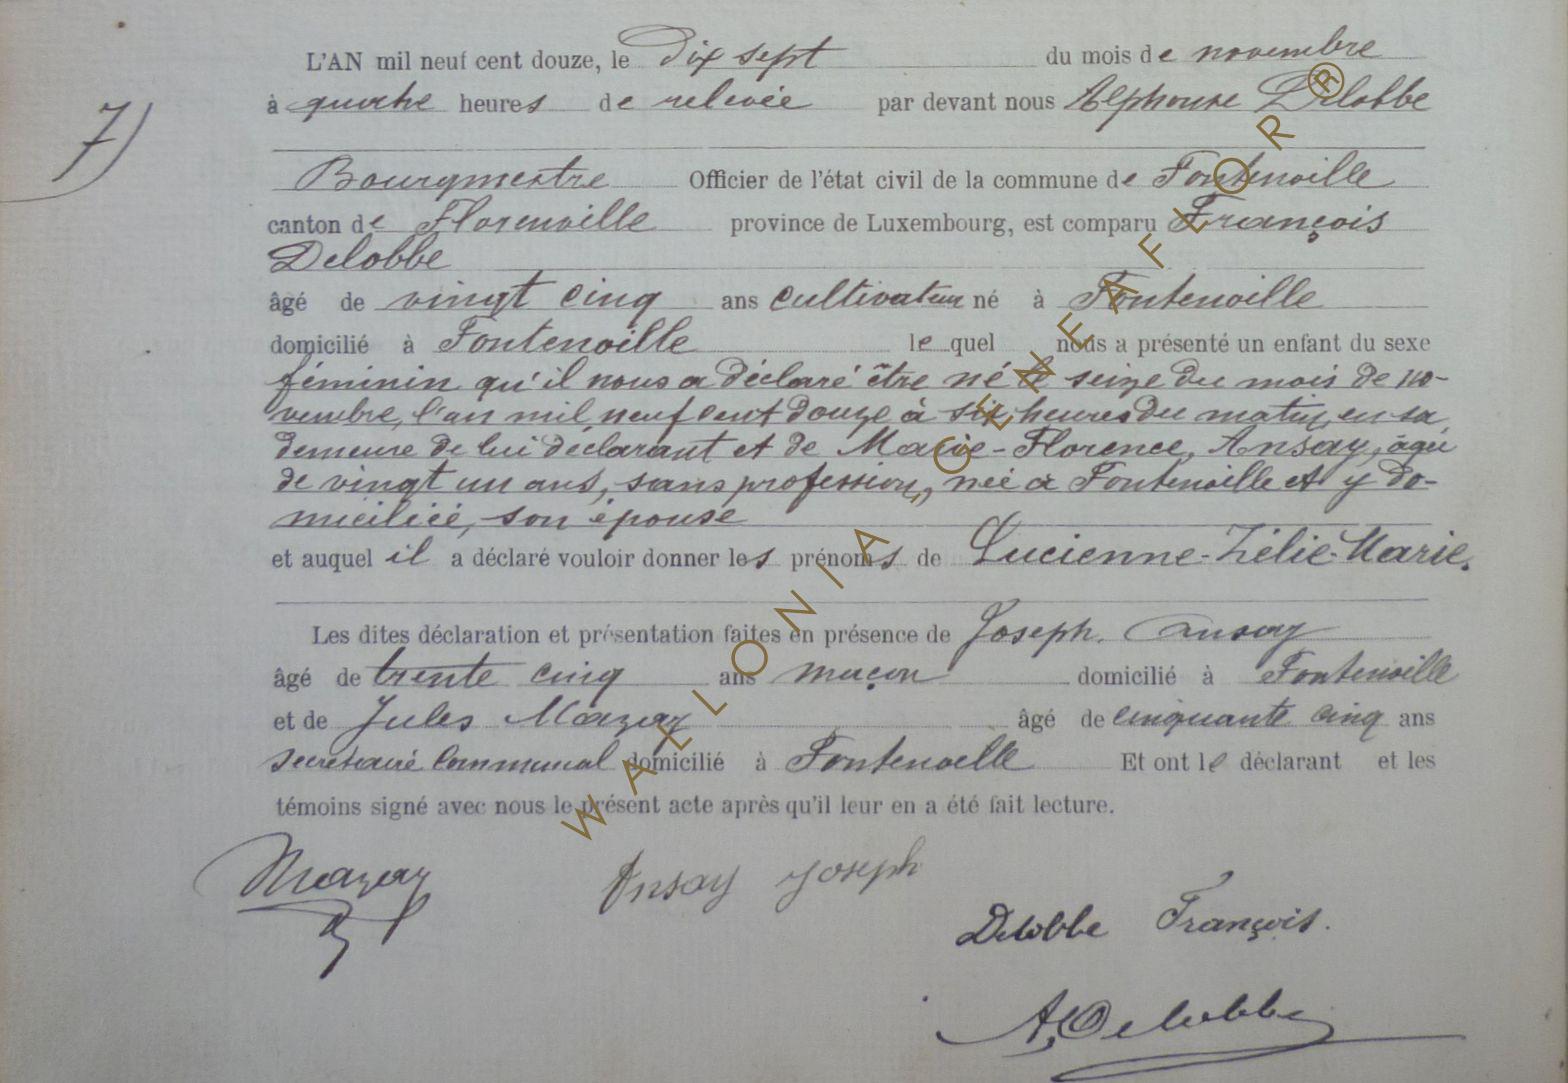 L'AN mil neuf cent douze, le Dix sept du mois de novembre
7)
à quatre heures de relevée par devant nous Alphonse Delobbe
Bourgmestre Officier de l'état civil de la commune de Fontenoille
canton de Florenville province de Luxembourg, est comparu François
Delobbe
âgé de vingt cinq ans cultivateur né à Fontenoille
domicilié à Fontenoille lequel nous a présenté un enfant du sexe
féminin qu'il nous a déclaré être né le seize du mois de no-
vembre, l'an mil neuf cent douze à six heures du matin, en sa
demeure de lui déclarant et de Marie-Florence, Ansay, agée
de vingt un ans, sans profession, née à Fontenoille et y do-
miciliée, son épouse
et auquel il a déclaré vouloir donner les prénoms de Lucienne-Zélie-Marie.
Les dites déclaration et présentation faites en présence de Joseph. Ansay
âgé de trente cinq ans maçon domicilié à Fontenoille
et de Jules Mazay âgé de cinquante cinq ans
secrétaire communal domicilié à Fontenoille Et ont le déclarant et les
témoins signé avec nous le présent acte après qu'il leur en a été fait lecture.
Mazay Ansay Joseph
Delobbe François.
A, Delobbe
WALLONIA GENEAFLOR R ®